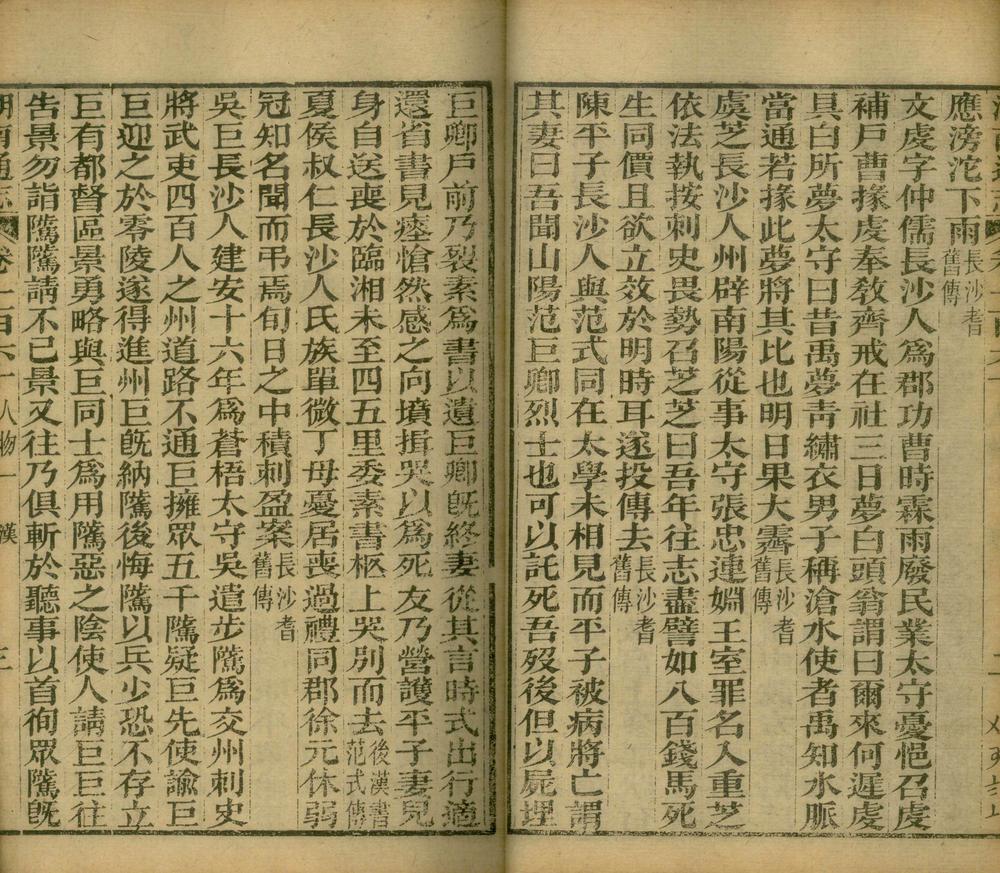 應滂沱下雨長沙耆舊傳
文虔字仲儒長沙人爲郡功曹時霖雨廢民業太守憂悒召虔
補戶曹掾虔奉敎齊戒在社三日夢白頭翁謂曰爾來何遲虔
具白所夢太守曰昔禹夢靑繡衣男子稱滄水使者禹知水脈
當通若掾此夢將其比也明日果大霽長沙耆舊傳
虞芝長沙人州辟南陽從事太守張忠連婣王室罪名入重芝
依法執按刺史畏勢召芝芝曰吾年往志盡譬如八百錢馬死
生同價且欲立效於明時耳遂投傳去長沙耆舊傳
陳平子長沙人與范式同在太學未相見而平子被病將亡謂
其妻曰吾聞山陽范巨卿烈士也可以託死吾歿後但以屍埋
巨卿戶前乃裂素爲書以遺巨卿旣終妻從其言時式出行適
還省書見瘞愴然感之向墳揖哭以爲死友乃營護平子妻兒
身自送喪於臨湘未至四五里委素書柩上哭別而去後漢書范式傳
夏侯叔仁長沙人氏族單微丁母憂居喪過禮同郡徐元休弱
冠知名聞而弔焉旬日之中積刺盈案長沙耆舊傳
吳巨長沙人建安十六年爲蒼梧太守吳遣步隲爲交州刺史
將武吏四百人之州道路不通巨擁眾五千隲疑巨先使諭巨
巨迎之於零陵遂得進州巨旣納隲後悔隲以兵少恐不存立
巨有都督區景勇略與巨同士爲用隲惡之陰使人請巨巨往
告景勿詣隲隲請不已景又往乃俱斬於聽事以首徇眾隲旣
湖南通志 卷一百六十 人物一 漢 三